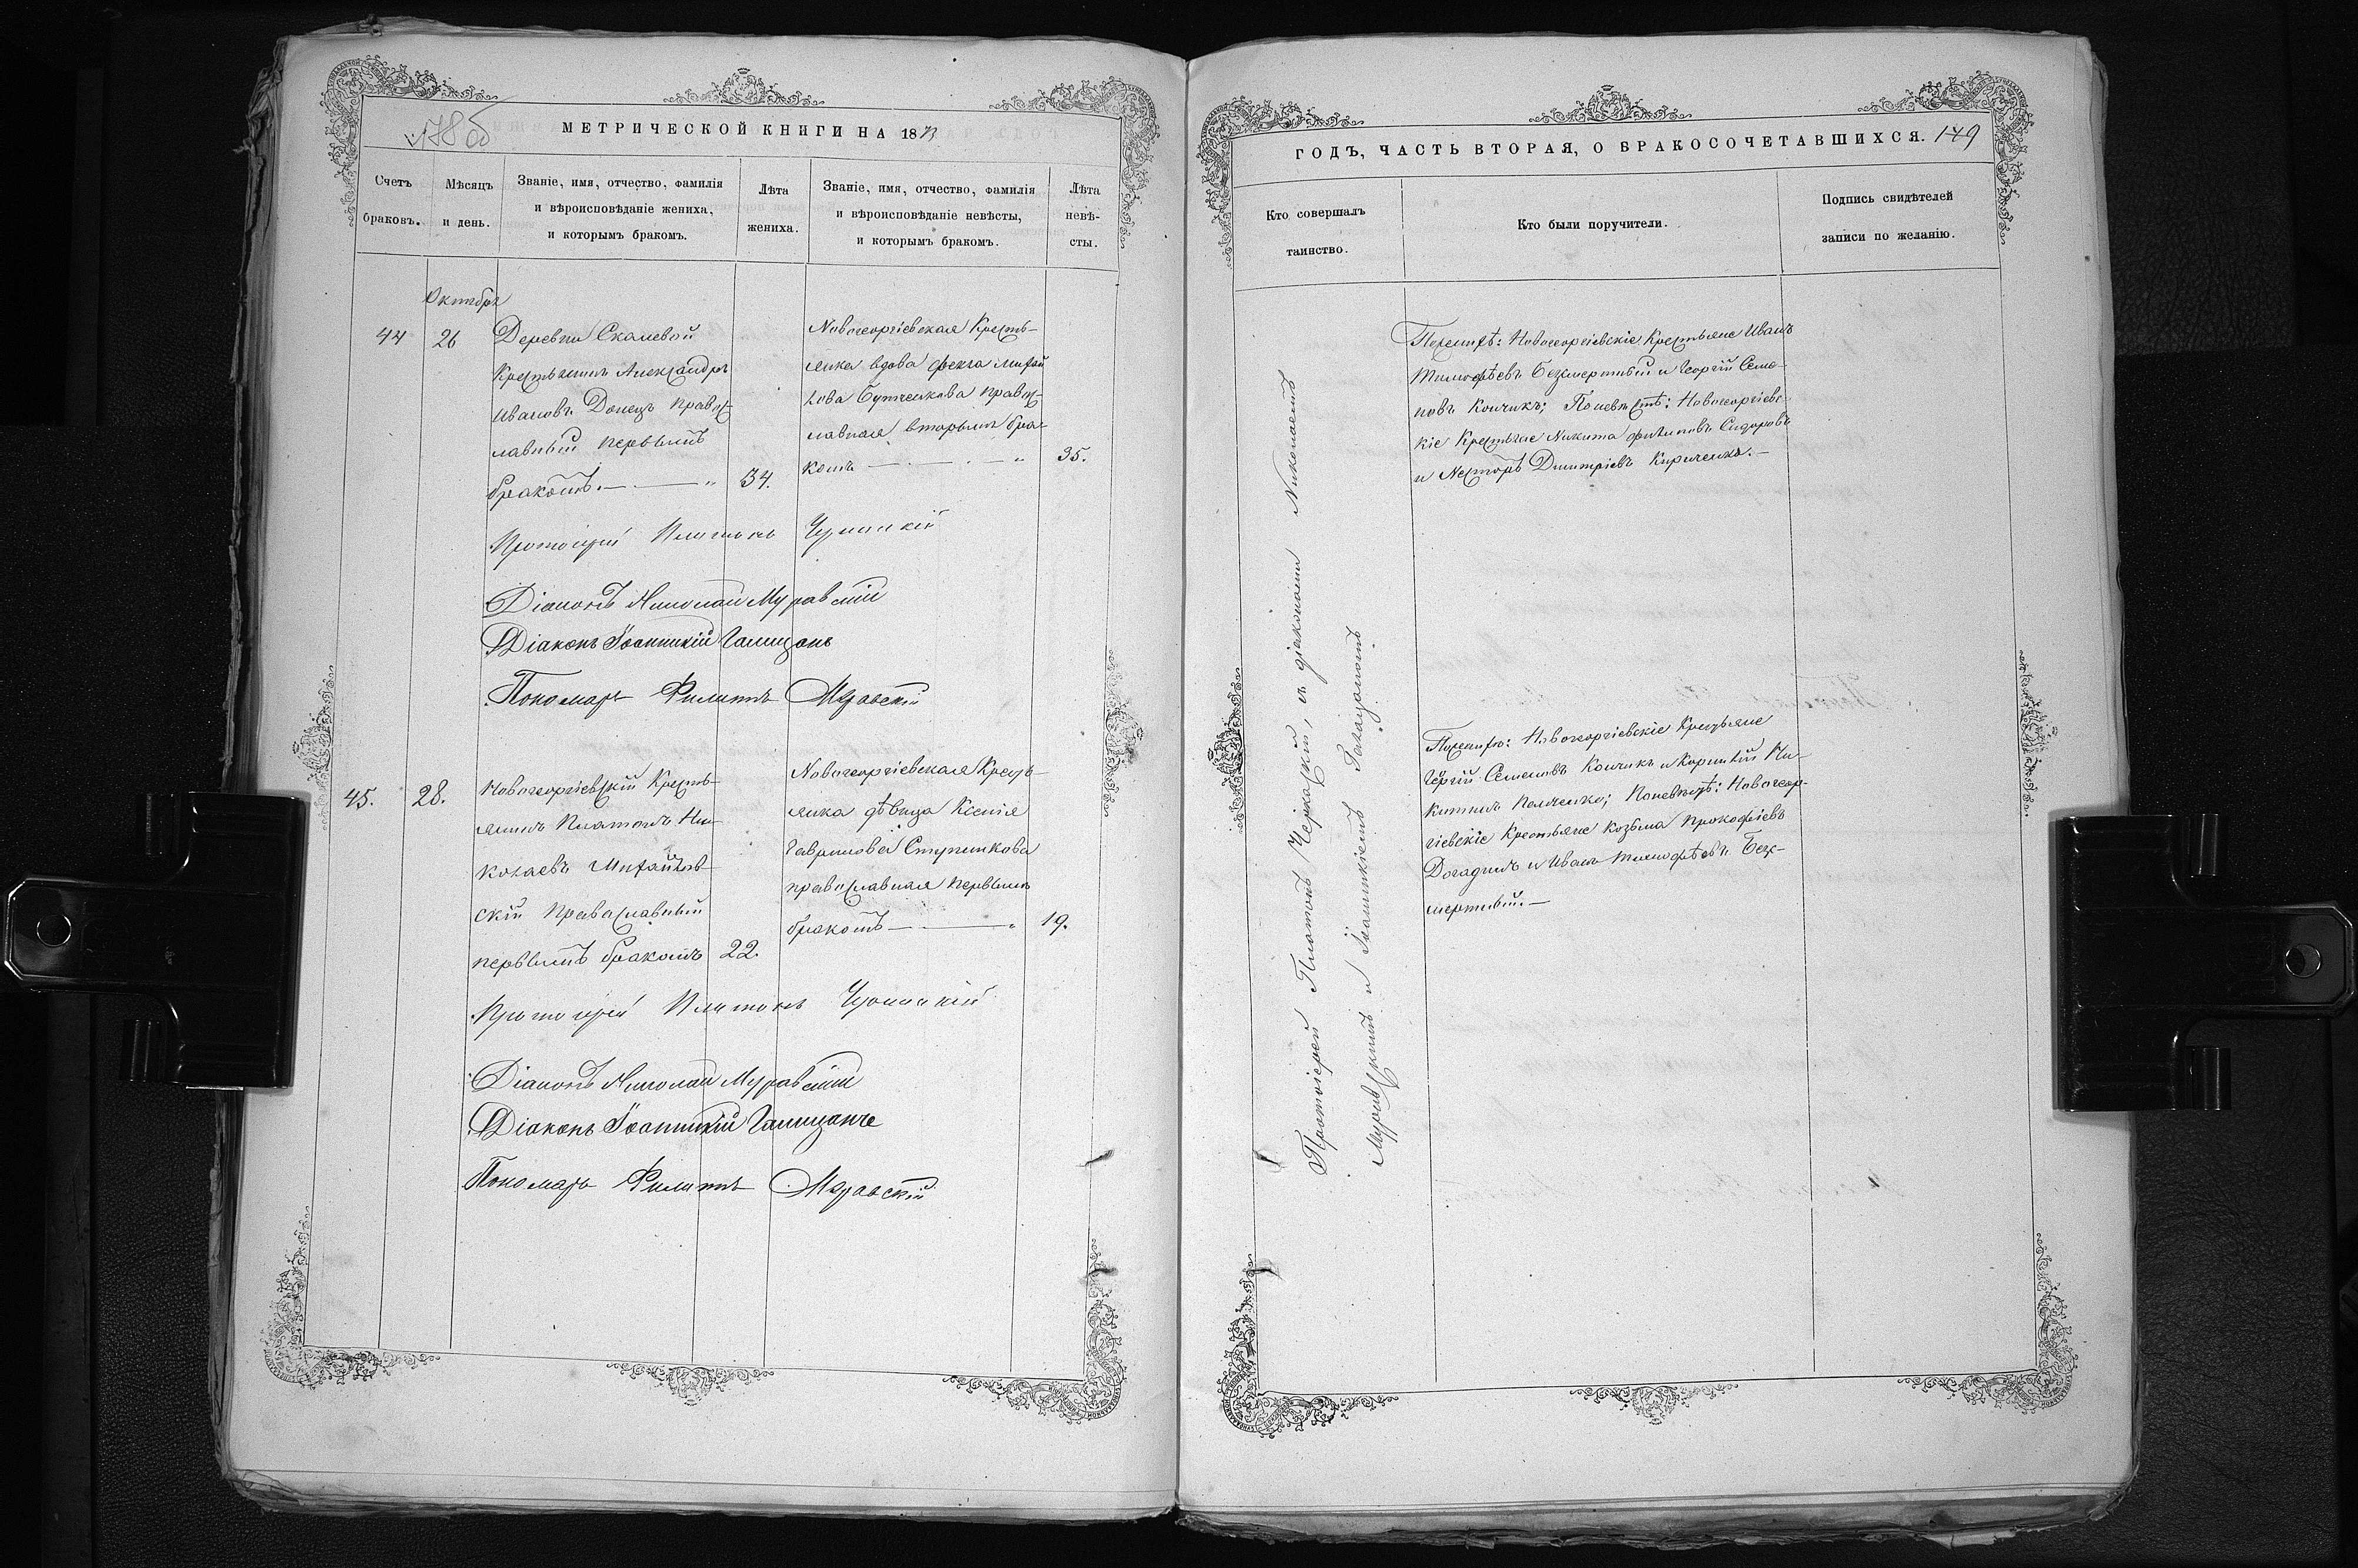 МЕТРИЧЕСКОЙ КНИГИ НА 1873
Счетъ браковъ.
Мѣсяцъ и день.
Званіе, имя, отчество, фамилія
и вѣроисповѣданіе жениха,
и которымъ бракомъ.
Лѣта жениха.
Званіе, имя, отчество, фамилія
и вѣроисповѣданіе невѣсты,
и которымъ бракомъ.
Лѣта невѣ-
сты.
Октября
44
26
Деревни Скалевой
Крестьянинъ Александръ
Ивановъ Донецъ правос-
лавный первымъ
бракомъ. — — „
34.
Новогеоргіевская Кресть-
янка вдова Фекла Михай
лова Бутченкова правос-
лавная вторымъ бра-
комъ — — „
35.
Протоіерей Платонъ
Діаконъ Николай Муравскій
Діаконъ Іоанникій
Пономарь Филиппъ Муравскій
45.
28.
Новогеоргіевскій Кресть-
янинъ Платонъ Ни-
колаевъ Михайлов-
скій Православный
первымъ бракомъ
22.
Новогеоргіевская Кресть-
янка дѣвица Ксенія
Гаврилова Ступникова
православная первымъ
бракомъ — — „
19.
Протоіерей Платонъ
Діаконъ Николай Муравскій
Діаконъ Іоанникій
Пономарь Филиппъ Муравскій
ГОДЪ, ЧАСТЬ ВТОРАЯ, О БРАКОСОЧЕТАВШИХСЯ. 149
Кто совершалъ
таинство.
Кто были поручители.
Подпись свидѣтелей
записи по желанію.
Протоіерей Платонъ Черкаскій, съ діаконами Николаемъ
Муравскимъ и Іоанникіемъ
По женихѣ: Новогеоргіевскіе Крестьяне Иванъ
Тимофѣевъ Безмертный и Георгій Семе-
новъ Кончикъ; По невѣстѣ: Новогеоргіевс-
кіе Крестьяне Никита Филиповъ Сидоровъ
и Несторъ Дмитріевъ Кириченко. —
По женихѣ: Новогеоргіевскіе Крестьяне
Георгій Семеновъ Кончикъ и Корнилій Ни-
китинъ Пелченко; По невѣстѣ: Новогеор-
гіевскіе Крестьяне Козьма Прокофіевъ
Догадинъ и Иванъ Тимофѣевъ Без-
мертный. —